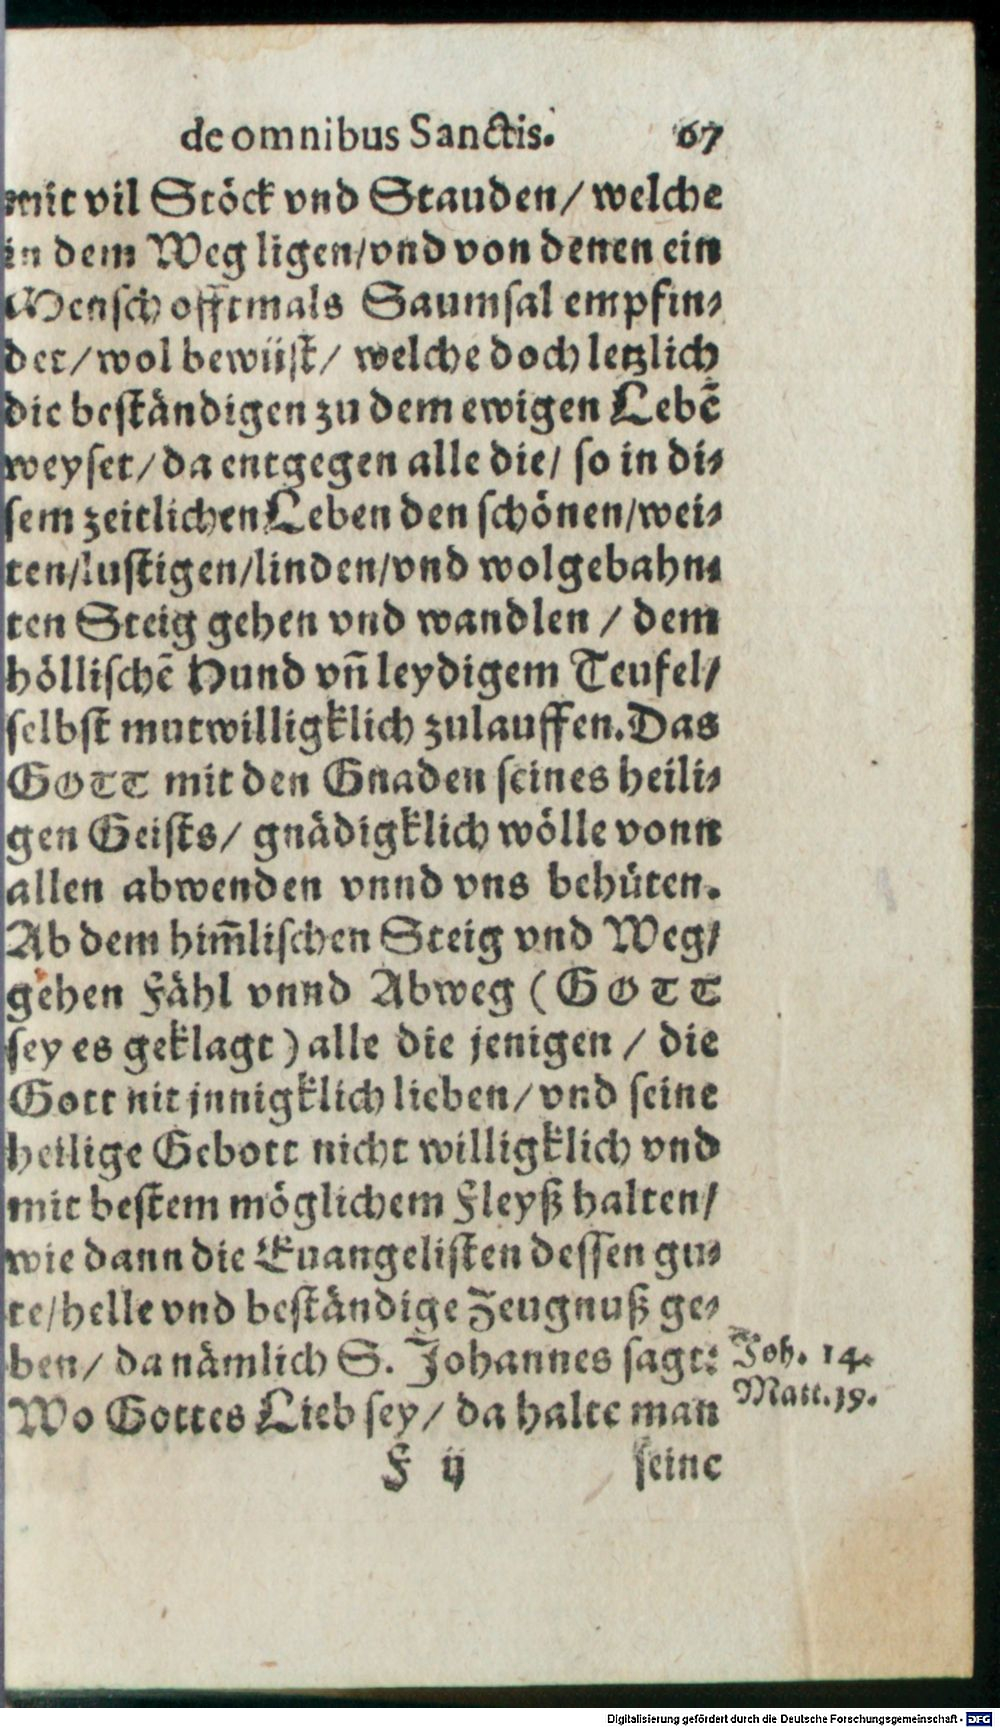 de omnibus Sanctis. 67
mit vil Stöck vnd Stauden/ welche
in dem Weg ligen/vnd von denen ein
Mensch offtmals Saumsal empfin-
det/wol bewüst/ welche doch letzlich
die beständigen zu dem ewigen Lebē
weyset/da entgegen alle die/ so in di-
sem zeitlichen Leben den schönen/wei-
ten/lustigen/linden/vnd wolgebahn-
ten Steig gehen vnd wandlen / dem
höllischē Hund vn̄ leydigem Teufel/
selbst mutwilligklich zulauffen. Das
GOTT mit den Gnaden seines heili-
gen Geists/ gnädigklich wölle vonn
allen abwenden vnnd vns behüten.
Ab dem him̄lischen Steig vnd Weg/
gehen Fähl vnnd Abweg (GOTT
sey es geklagt) alle die jenigen / die
Gott nit jnnigklich lieben/vnd seine
heilige Gebott nicht willigklich vnd
mit bestem möglichem Fleyß halten/
wie dann die Euangelisten dessen gu-
te/helle vnd beständige Zeugnuß ge-
ben/ da nämlich S. Johannes sagt:
Joh. 14.
Wo Gottes Lieb sey/ da halte man
Matt. 19.
F ij seine
Digitalisierung gefördert durch die Deutsche Forschungsgemeinschaft - DFG